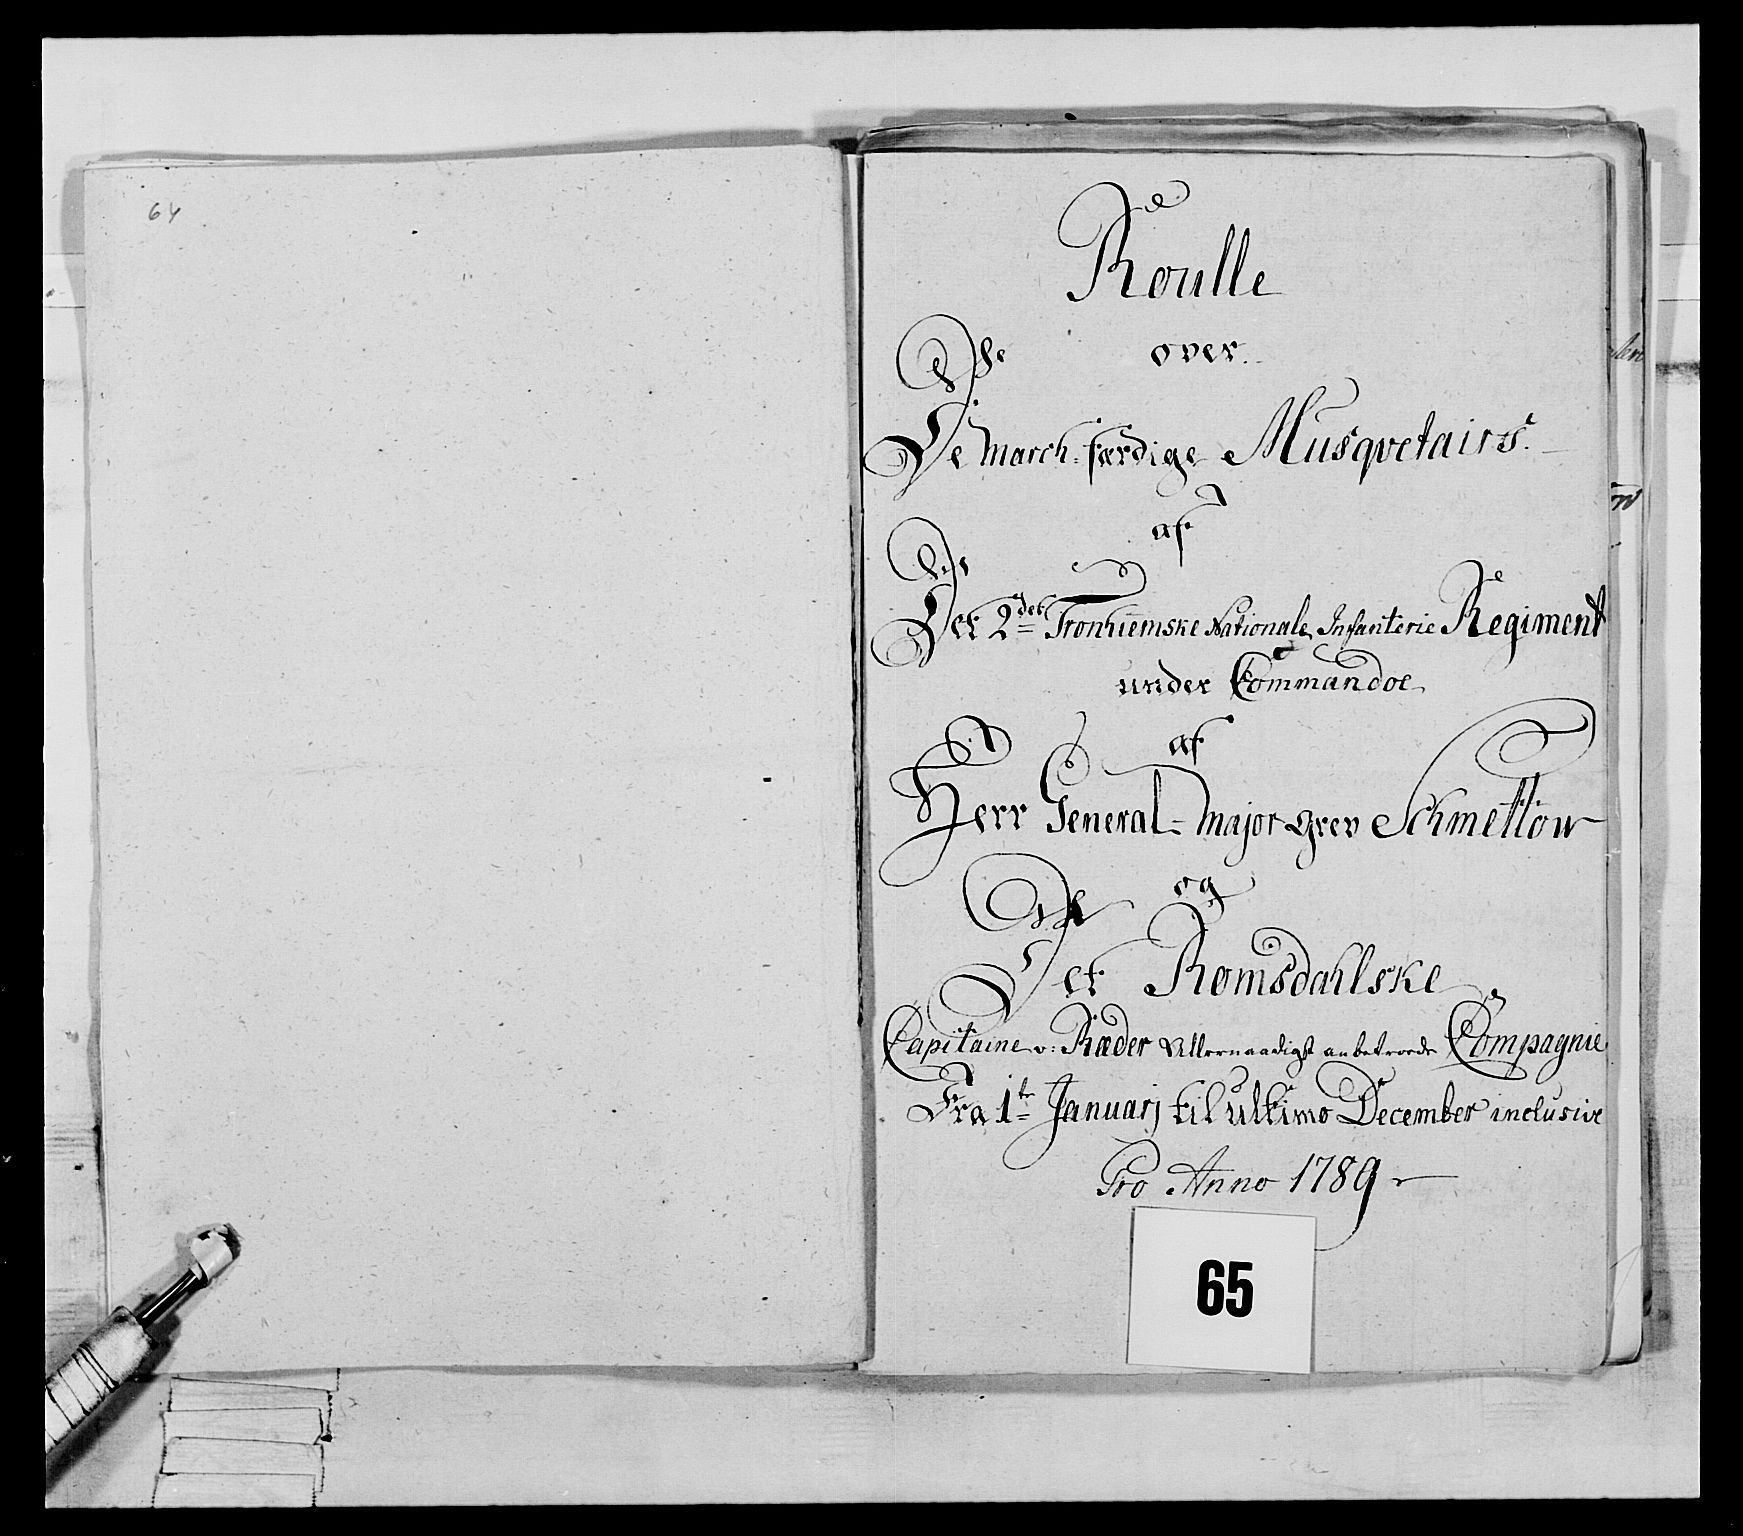 64
Roulle
over
De march-færdige Musqvetairs.
af
Det 2det Tronhiemske Nationale Infanterie Regiment
under Commandoe
af
Herr General-major Grev Schmettow
og
Det Romsdahlske
Capitaine v: Ræder Allernaadigst anbetroede Compagnie
Fra 1te Januarj til ultimo December inclusive
Pro Anno 1789
65